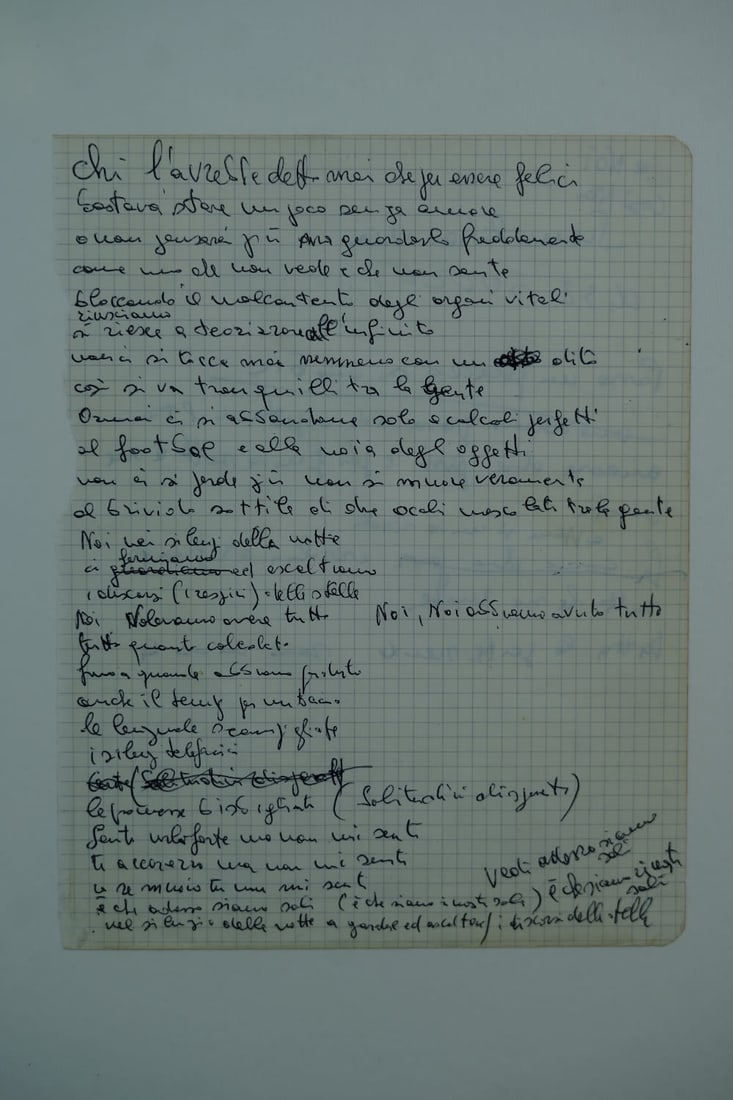 Chi l'avrebbe detto mai che per essere felici
bastava stare un poco senza amore
o non pensarci più ma guardarlo freddamente
come uno che non vede e che non sente
bloccando il malcontento degli organi vitali
riusciamo
si riesce a teorizzare all'infinito
non ci si tocca mai nemmeno con un dito
così si va tranquilli tra la gente
Ormai ci si abbandona solo a calcoli perfetti
al football e alla noia degli oggetti
non ci si perde più non si muore veramente
al brivido sottile di due occhi mescolati tra la gente
Noi nei silenzi della notte
fermiamo
ci guardiamo ed ascoltiamo
i discorsi (i respiri) delle stelle
Noi Volevamo avere tutto Noi, Noi abbiamo avuto tutto
tutto quanto calcolato
fino a quando abbiamo perduto
anche il tempo per un bacio
le lenzuola scompigliate
i silenzi telefonici
le promesse bisbigliate (Solitudini disperate)
Senti urlo forte ma non mi senti
ti accarezzo ma non mi senti
e se muoio tu non mi senti
Vedi adesso siamo soli
è che adesso siamo soli (è che siamo i nostri soli) è che siamo i nostri soli
nel silenzio della notte a guardare ed ascoltare i discorsi delle stelle